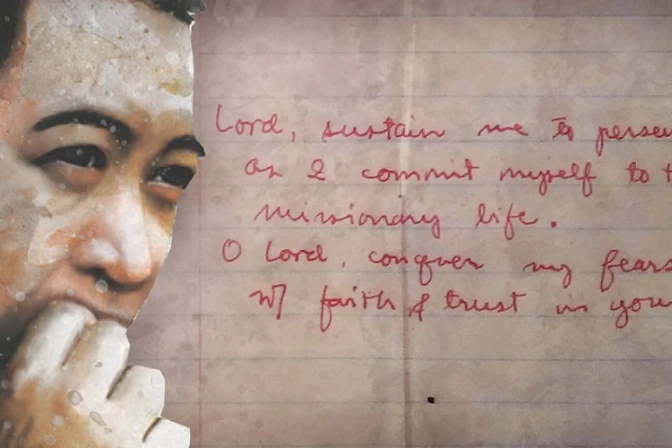 Lord, sustain me to perseve
as I commit myself to t
missionary life.
O Lord, conquer my fears
w/ faith & trust in you